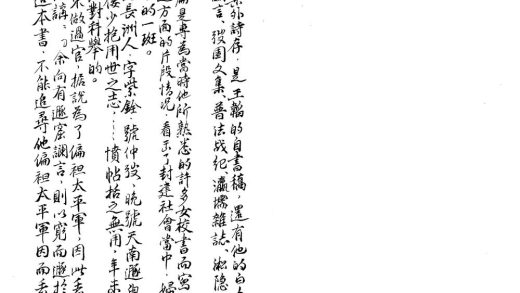 集外詩存,是王韜的自書稿,還有他的白
言、弢園文集、普法战纪、瀛壖雜誌、淞隐
編是専為當時他所熟悉的許多女校書而寫
这方面的片段情况,看出了封建社會當中,婦
的一斑。
長洲人,字紫銓,號仲弢,晚號天南遯叟
俊少抱用世之志……憤帖括之無用,年未
對科舉的。
不做過官,据說為了偏袒太平軍,因此丟
請,刁余向有遯窟讕言,則以窮而遯於
這本書,不能追尋他偏袒太平軍,因而丟